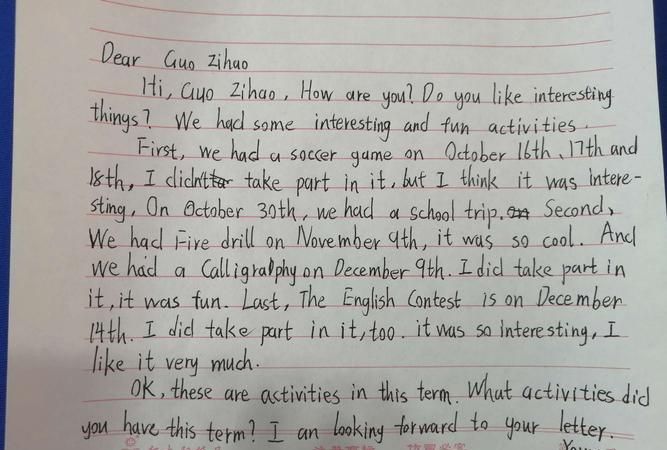 Dear Guo Zihao
Hi, Guo Zihao, How are you? Do you like interesting
things? We had some interesting and fun activities.
First, we had a soccer game on October 16th、17th and
18th, I didn't take part in it, but I think it was intere-
sting, On October 30th, we had a school trip. Second,
We had Fire drill on November 9th, it was so cool. And
we had a Calligralphy on December 9th. I did take part in
it, it was fun. Last, The English Contest is on December
14th. I did take part in it, too. it was so interesting, I
like it very much.
OK, these are activities in this term. What activities did
you have this term? I an looking forward to your letter.